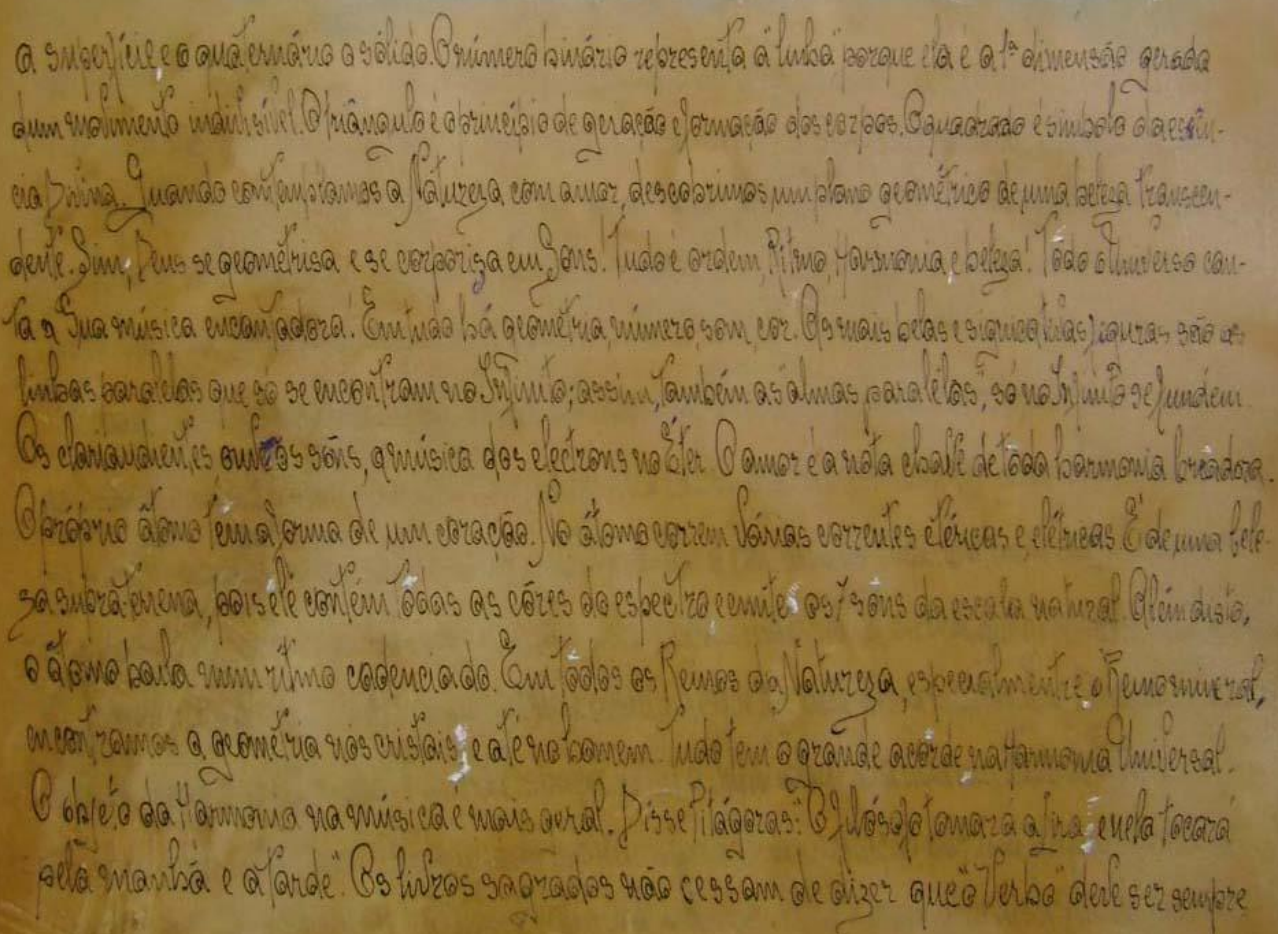 a superfície e o quaternário o sólido. O número binário representa a "linha" porque ela é a 1ª dimensão gerada
dum movimento indivisível. O triângulo é o princípio de geração e formação dos corpos. O quadrado é símbolo da essên-
cia Divina. Quando contemplamos a Natureza com amor, descobrimos um plano geométrico de uma beleza transcen-
dente. Sim, Deus se geometrisa e se corporiza em Sons! Tudo é ordem, Ritmo, Harmonia, e beleza! Todo o Universo can-
ta a Sua música encantadora! Em tudo há geometria, número, som, cor. As mais belas e significativas figuras são as
linhas paralelas que só se encontram no Infinito; assim, também as almas "paralelas", só no Infinito se fundem.
Os clariaudientes ouvem os sons, a música dos electrons no Éter. O amor é a nota chave de toda harmonia creadora.
O próprio átomo tem a forma de um coração. No átomo correm várias correntes etéricas e elétricas. É de uma bele-
sa supra-terrena, pois ele contém todas as côres do espectro e emite os 7 sons da escala natural. Além disto,
o átomo baila num ritmo cadenciado. Em todos os Reinos da Natureza, especialmente o Reino mineral,
encontramos a geometria nos cristais, e até no homem. Tudo tem o grande acorde na Harmonia Universal.
O objeto da Harmonia na música é mais geral. Disse Pitágoras: "O filósofo tomará a lira, e nela tocará
pela manhã e à tarde". Os livros sagrados não cessam de dizer que "o Verbo" deve ser sempre